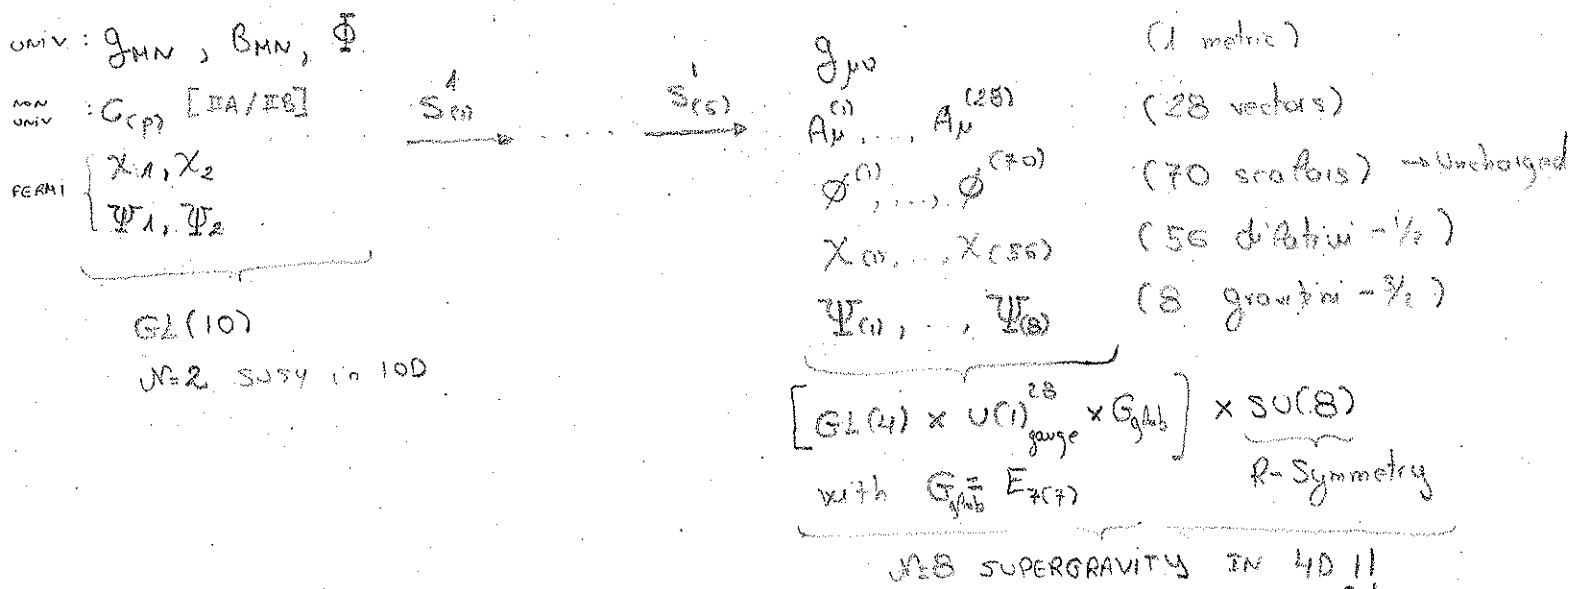 UNIV : g_MN , B_MN, Φ
NON UNIV : C_(p) [IIA/IIB]
FERMI { χ_1, χ_2
Ψ_1, Ψ_2
GL(10)
N=2 SUSY in 10D
S^1_(1) → ...... S^1_(6) →
g_μν (1 metric)
A_μ^(1), ..., A_μ^(28) (28 vectors)
φ^(1), ..., φ^(70) (70 scalars) → Uncharged
χ_(1), ..., χ_(56) (56 dilatini - 1/2)
Ψ_(1), ..., Ψ_(8) (8 gravitini - 3/2)
[GL(4) × U(1)^28_gauge × G_glob] × SU(8)
with G_glob = E_7(7) R-Symmetry
N=8 SUPERGRAVITY IN 4D !!